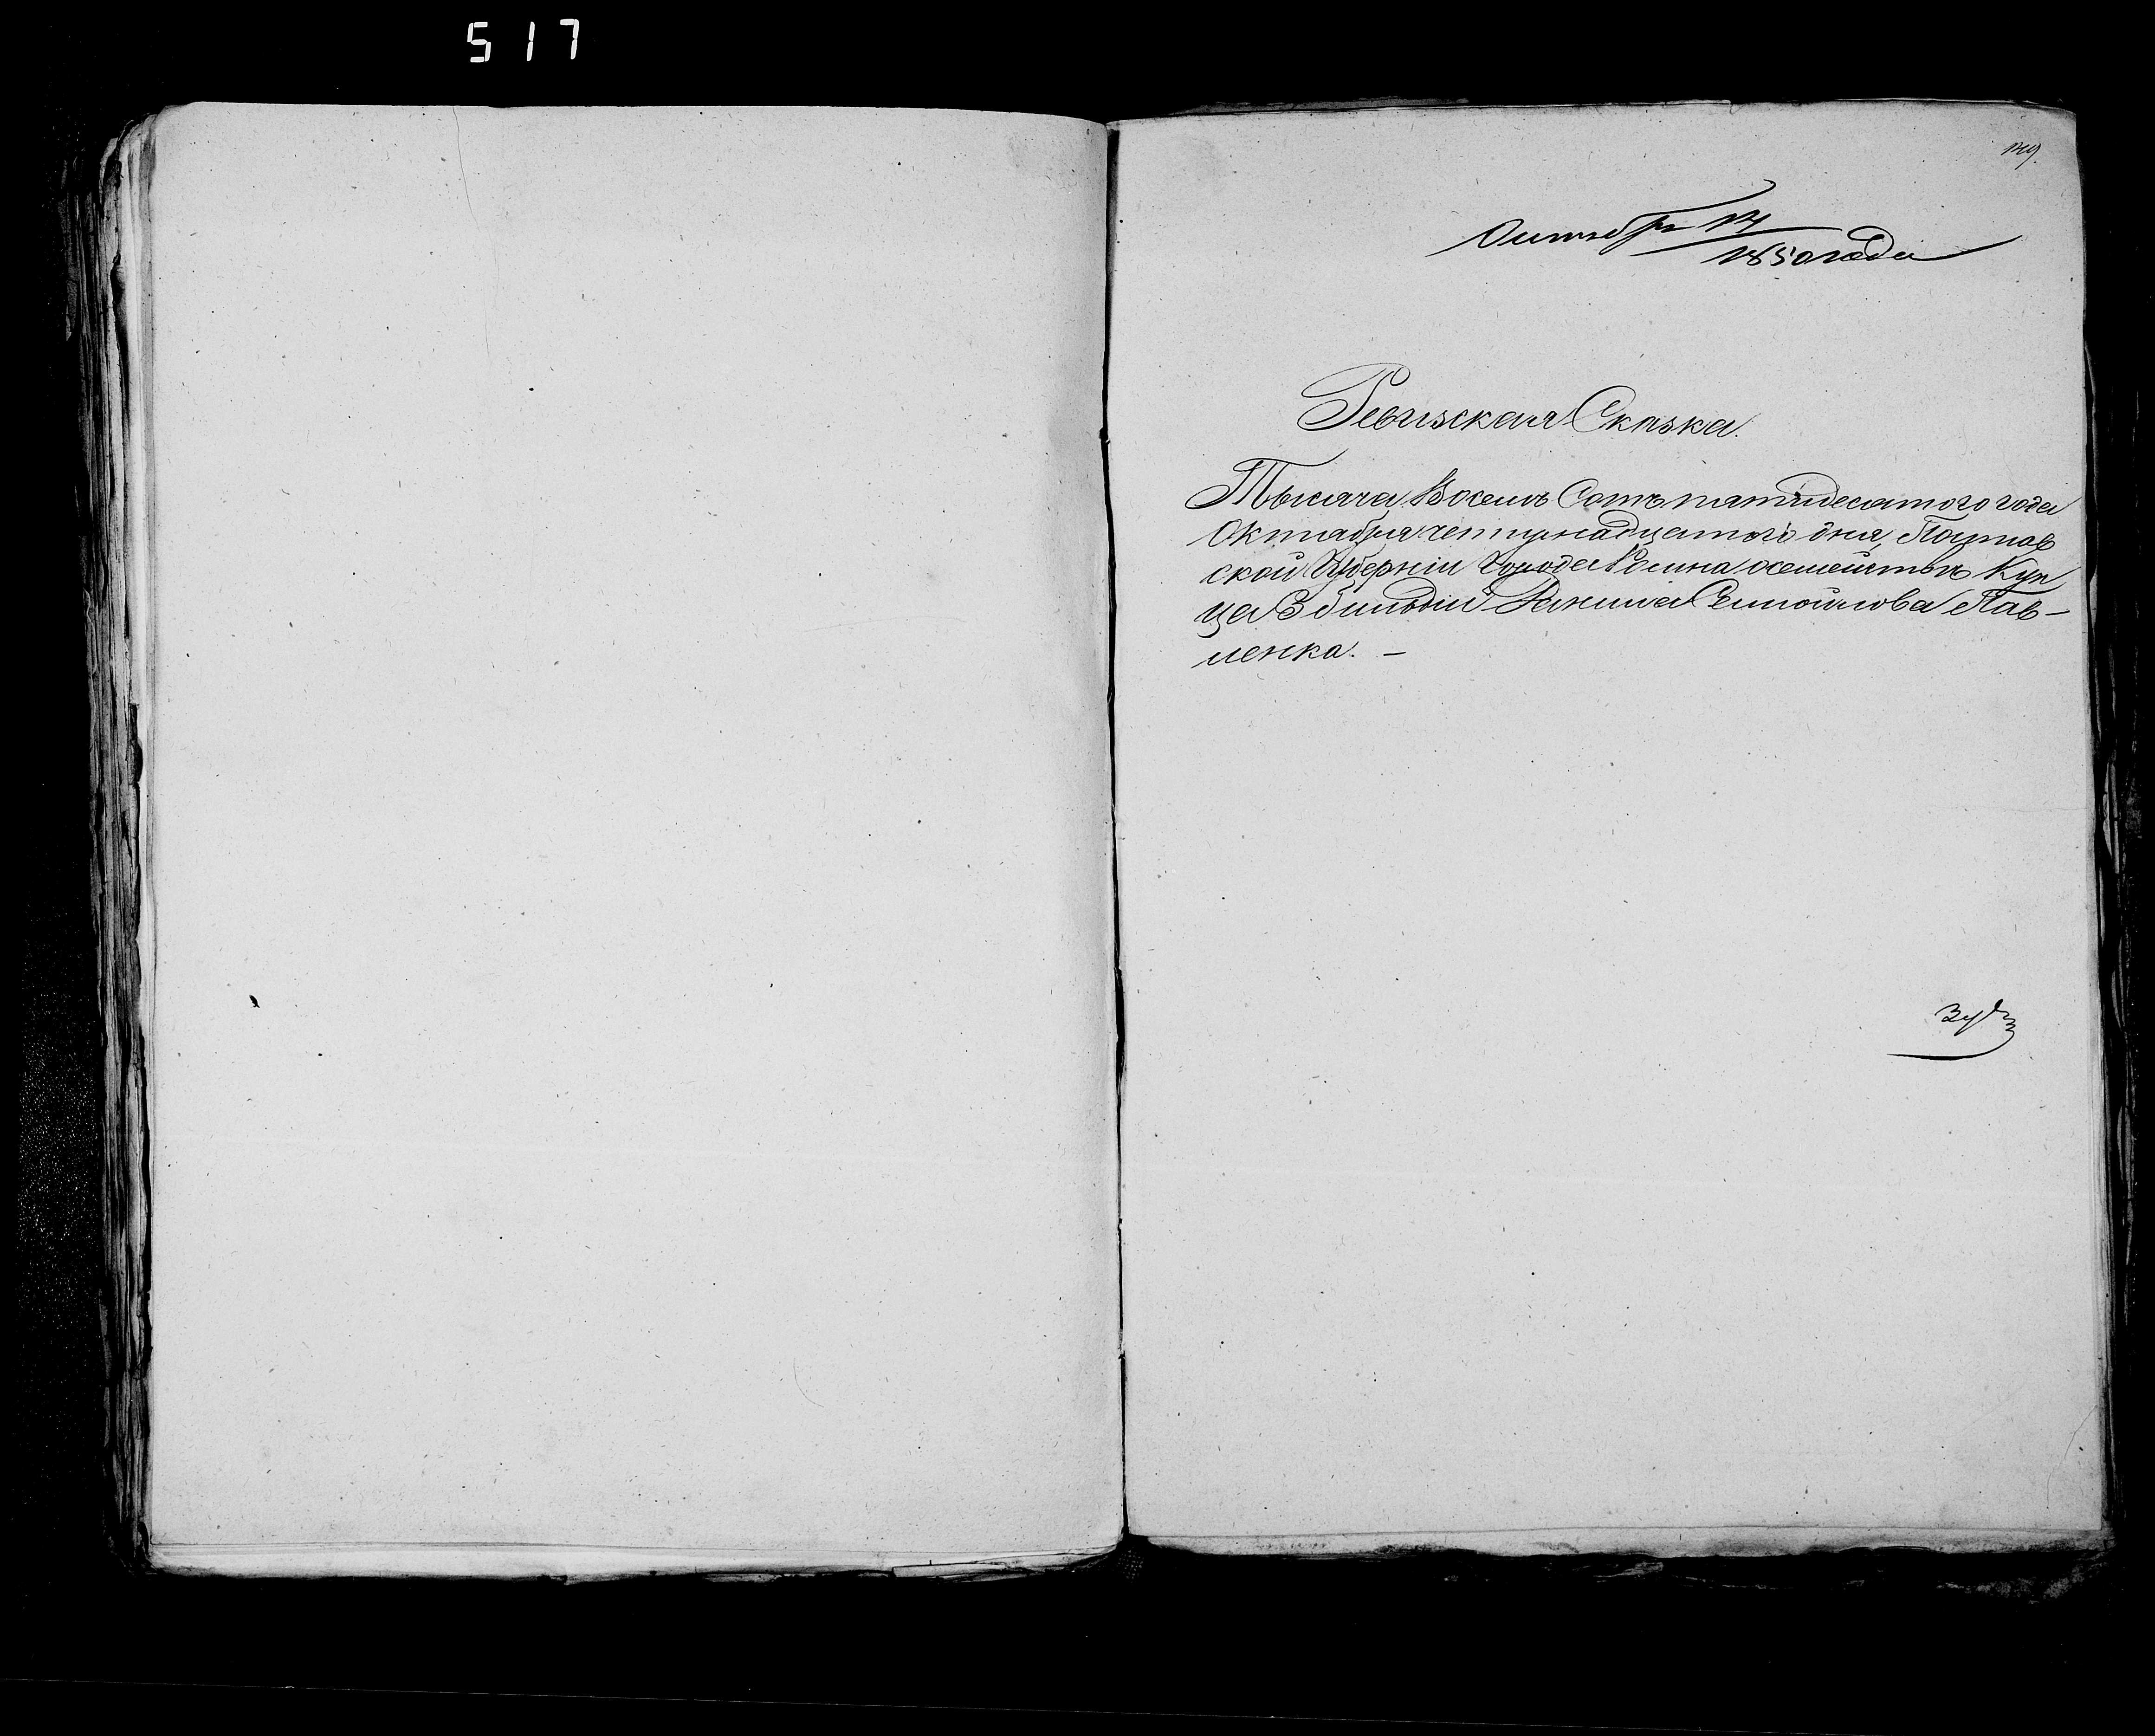 517
Октября 14
1850 года
Ревизская Сказка.
Тысяча Восемь Сотъ пятидесятого года
Октября четырнадцатого дня, Полтав
ской Губерніи Города Ромна о семействѣ Куп
ца 3 Гильдіи Самойлова Пав-
ленка. —